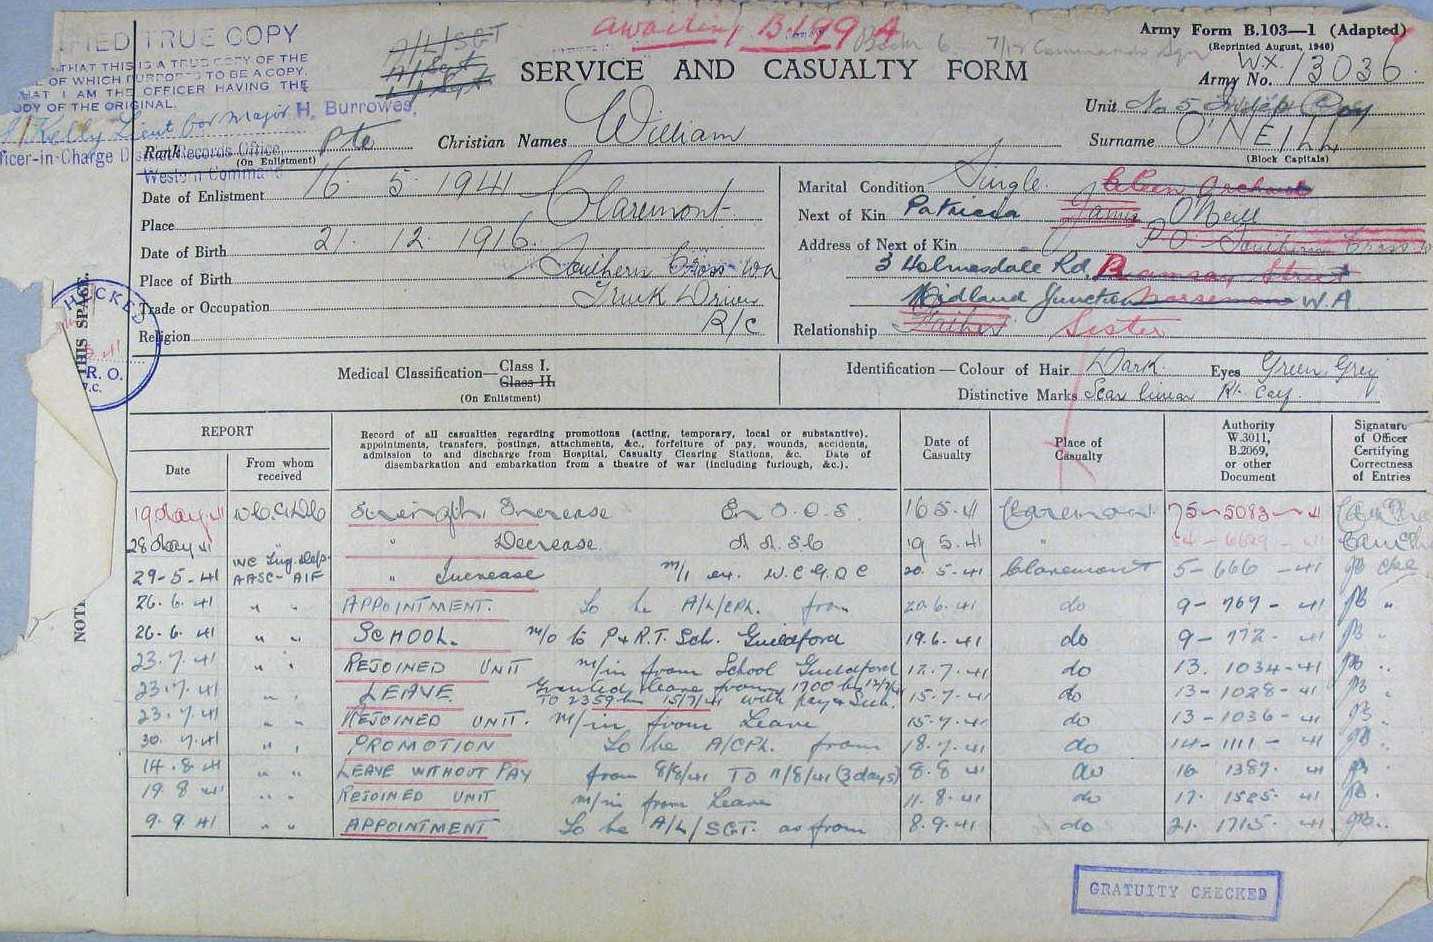 FIED TRUE COPY
THAT THIS IS A TRUE COPY OF THE
OF WHICH PURPORTS TO BE A COPY.
THAT I AM THE OFFICER HAVING THE
ODY OF THE ORIGINAL.
Kelly Lieut for Major H. Burrowes,
ficer-in-Charge District Records Office,
Western Command
A/L/SGT
A/Sgt
awaiting B.199A
7/12 Commando Sqn
SERVICE AND CASUALTY FORM
Army Form B.103—1 (Adapted)
(Reprinted August, 1940)
Army No. WX. 13036.
Unit No 5 Indep Coy
Rank Pte
(On Enlistment)
Christian Names William
Surname O'NEILL
(Block Capitals)
Date of Enlistment 16. 5. 1941
Place Claremont
Date of Birth 21. 12. 1916
Place of Birth Southern Cross WA
Trade or Occupation Truck Driver
Religion R/C
Marital Condition Single.
Next of Kin Patricia James O'Neill
Address of Next of Kin P.O. Southern Cross
3 Holmesdale Rd. Ramsay Street
Midland Junction Norseman W.A
Relationship Father Sister
THIS SPACE.
CHECKED
R. O.
Medical Classification—Class I.
Class II.
(On Enlistment)
Identification—Colour of Hair Dark. Eyes Green Grey
Distinctive Marks Scar Rt.
REPORT
Date
From whom received
Record of all casualties regarding promotions (acting, temporary, local or substantive),
appointments, transfers, postings, attachments, &c., forfeiture of pay, wounds, accidents,
admission to and discharge from Hospital, Casualty Clearing Stations, &c. Date of
disembarkation and embarkation from a theatre of war (including furlough, &c.).
Date of Casualty
Place of Casualty
Authority W.3011, B.2069, or other Document
Signature of Officer Certifying Correctness of Entries
19 May 41 Strength Increase 16.5.41 Claremont 75-5093-41
28 May 41 " Decrease A.A.S.C 19 5.41 "
29-5-41 AASC-AIF " Increase m/i ex. W.C.G.D.C 20.5-41 Claremont 5-666-41
26.6.41 " " APPOINTMENT. To be A/L/CPL. from 20.6.41 do 9-769-41
26.6.41 " " SCHOOL. m/o to P+R.T. Sch. Guildford 19.6.41 do 9-772-41
23.7.41 " " REJOINED UNIT m/in from School Guildford 12.7.41 do 13. 1034-41
23.7.41 " " LEAVE Granted leave from 1700 hrs 12/7/41
TO 2359 hrs 15/7/41 with pay & Sub. 15.7.41 do 13-1028-41
23.7.41 " " REJOINED UNIT. m/in from Leave 15-7-41 do 13-1036-41
30.7.41 " " PROMOTION To be A/CPL. from 18.7.41 do 14-1111-41
14.8.41 " " LEAVE WITHOUT PAY from 8/8/41 TO 11/8/41 (3 days) 8.8 41 do 16 1387. 41
19.8 41 " " REJOINED UNIT m/in from Leave 11.8.41 do 17. 1525. 41
9.9.41 " " APPOINTMENT To be A/L/SGT. as from 8.9.41 do 21. 1715. 41
GRATUITY CHECKED